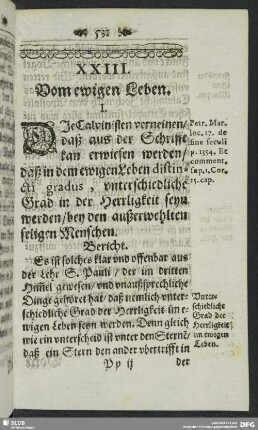 592
XXIII.
Vom ewigen Leben.
I.
DIe Calvinisten verneinen/
daß aus der Schrifft
kan erwiesen werden/
daß in dem ewigen Leben distin
cti gradus, vnterschiedliche
Grad in der Herrligkeit seyn
werden/bey den außerwehlten
seligen Menschen.
Petr. Mar.
loc. 17. de
fine seculi
p. 1354. Et
comment.
sup. 1. Cor.
15. cap.
Bericht.
Es ist solches klar vnd offenbar aus
der Lehr S. Pauli/ der im dritten
Hiṁel gewesen/ vnd vnaußsprechliche
Dinge gehöret hat/ daß nemlich vnter-
schiedliche Grad der Herrligkeit im e-
wigen Leben seyn werden. Denn gleich
wie ein vnterscheid ist vnter den Sternē/
daß ein Stern den ander vbertrifft in
Vnter-
schiedliche
Grad der
Herrligkeit
im ewigen
Leben.
Pp ij
der
SLUB
DFG